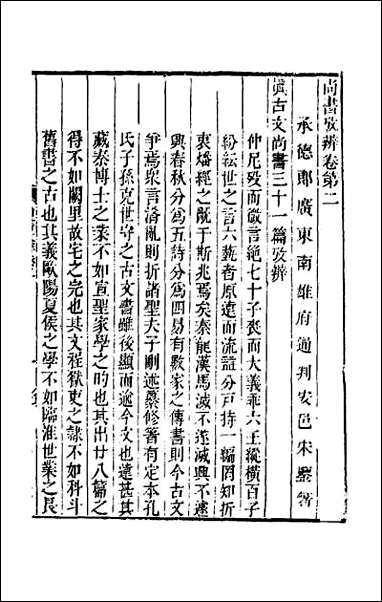 尚書攷辨卷第二
承德郎廣東南雄府通判安邑宋鑒著
眞古文尚書三十一篇攷辨
仲尼歿而微言絶七十子喪而大義乖六王縱橫百子
紛紜世之言六藝者原遠而流詭分戸持一編罔知折
衷燔經之厄于斯兆焉矣秦熄漢焉滅不遂滅興不遽
興春秋分爲五詩分爲四易有數家之傳書則今古文
爭焉衆言淆亂則折諸聖夫子刪述纂修箸有定本孔
氏子孫克世守之古文書雖後顯而遜今文也遠甚其
藏秦博士之業不如宣聖家學之的也其出廿八篇之
得不如闕里故宅之完也其文程獄吏之隷不如科斗
舊書之古也其義歐陽夏侯之學不如臨淮世業之長